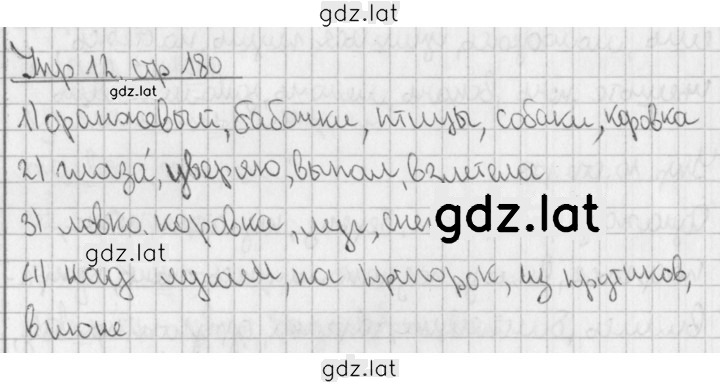 gdz.lat
Упр 12. стр 180
gdz.lat
1) оранжевый, бабочки, птицы, собаки, коровка
2) глаза́, уверяю, выпал, взлетела
3) ловко. коровка, луг, снег
gdz.lat
gdz.lat
4) над лугами, на пригорок, из прутиков,
в июне
gdz.lat